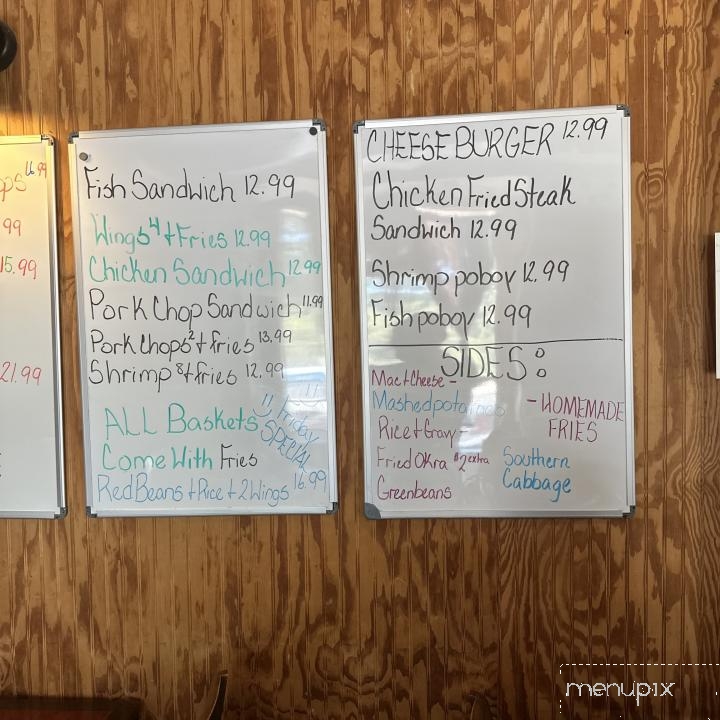 ops 16.99
99
15.99
21.99
Fish Sandwich 12.99
Wings 4 + Fries 12.99
Chicken Sandwich 12.99
Pork Chop Sandwich 11.99
Pork Chops 2 + fries 13.99
Shrimp 8 + fries 12.99
ALL Baskets
Come With Fries
Friday
SPECIAL
Red Beans + Rice + 2 Wings 16.99
CHEESE BURGER 12.99
Chicken Fried Steak
Sandwich 12.99
Shrimp poboy 12.99
Fish poboy 12.99
SIDES:
Mac + Cheese -
Mashed potatoes
Rice + Gravy -
Fried OKra $2 extra
Greenbeans
- HOMEMADE
FRIES
Southern
Cabbage
menupix